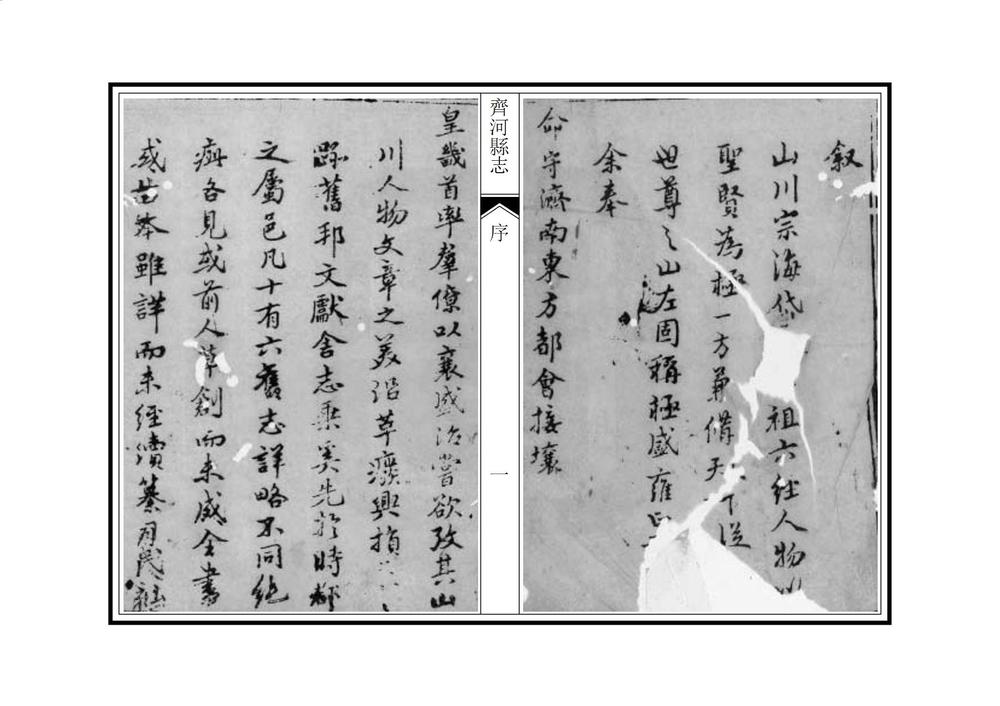 叙
山川宗海岱
祖六經人物
聖賢為極一方兼備天下從
世尊之山左固稱極盛雍
余奉
命守濟南東方都會接壤
齊河縣志
序
一
皇畿首率羣僚以襄盛治嘗欲攷其山
川人物文章之美沿革癈興損
跡舊邦文獻舍志乗奚先於時郡
之屬邑凡十有六舊志詳略不同純
疵各見或前人草創而未成全書
或 本雖詳而未經續纂